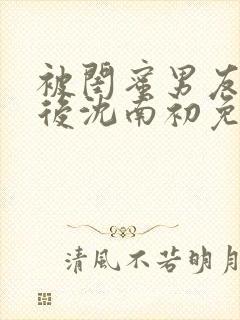 被閨蜜男友
後沈南初免
清風不若明月